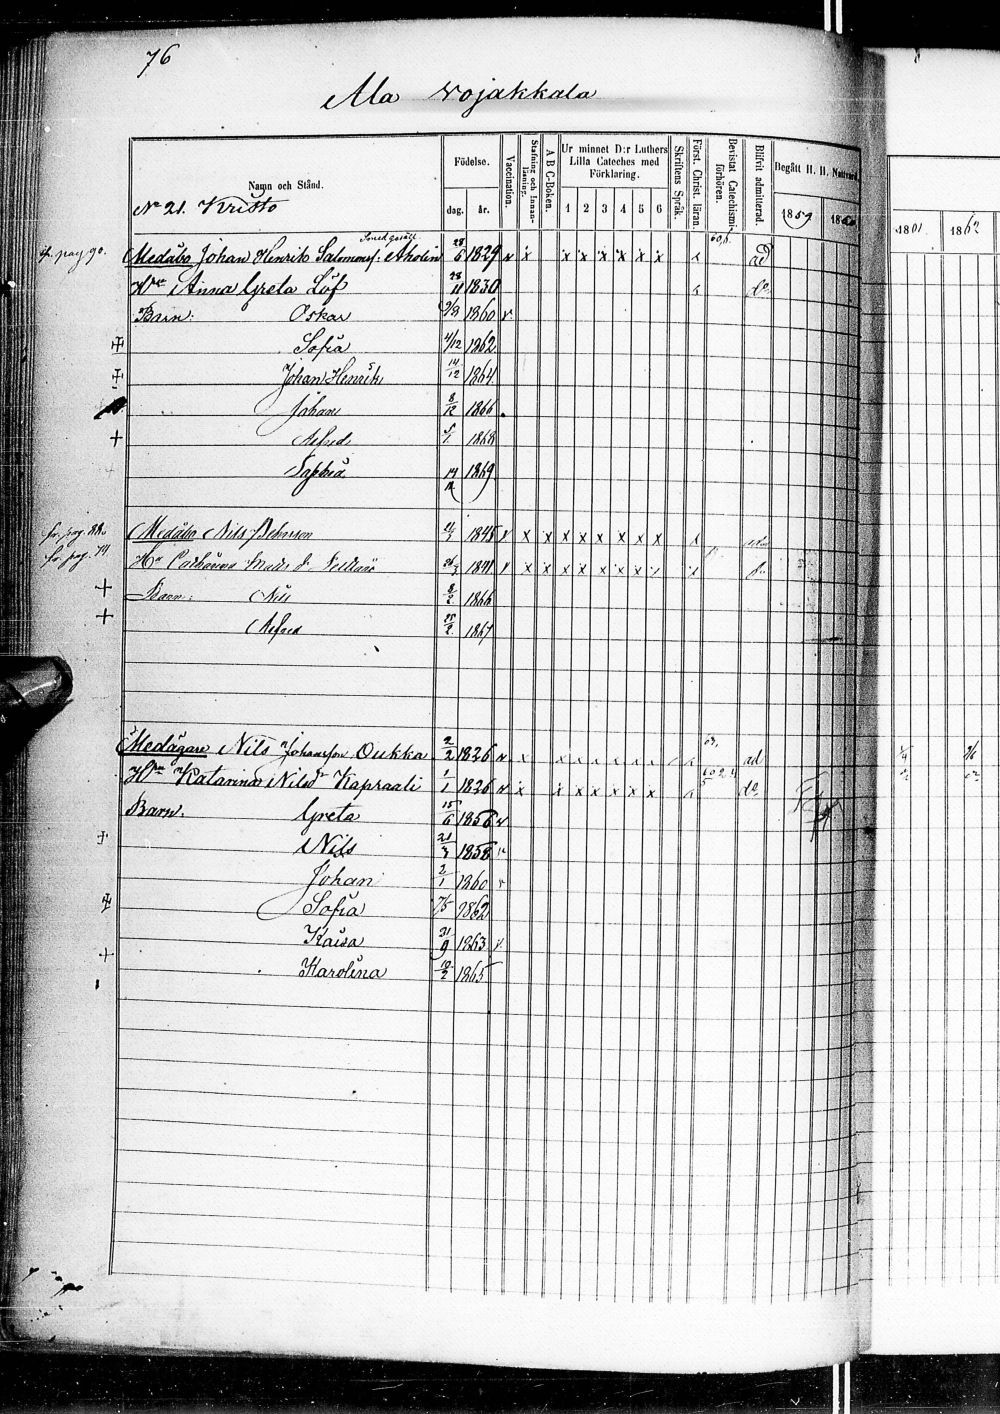 76
Ala vojakkala
Namn och Stånd.
Födelse.
dag. år.
Vaccination.
Stafning och Innanläsning.
A B C-Boken.
Ur minnet D:r Luthers Lilla Cateches med Förklaring.
1 2 3 4 5 6
Skriftens Språk.
Först. Christ. läran.
Bevistat Catechismi förhören.
Blifvit admitterad.
Begått H. H. Nattvard.
1859 1860
1861 1862
No 21. Kristo
Smedgesäll
fr. pag 90. Medåbo Johan Henrik Salomonsf: Aholin 28/6 1829 v x x x x x x x x ad
Hru Anna Greta Löf 28/11 1830 do
Barn: Oskar 9/8 1860 v
Sofia 4/12 1862
Johan Henrik 14/12 1864
Johan 8/12 1866
Alfred 1868
1869
fr. pag. 88. Medåbo Nils 1845 v x x x x x x x x x
fr. pag. 74 Hu Catharina 1841 v x x x x x x x x x
Barn: Nils 8/2 1866
Alfred 1867
Medägare Nils Johansson Oukka 2/2 1826 v x x x x x x x ad
Hru Katarina Nilsdr Kapraali 1/1 1826 v x x x x x x x do
Barn: Greta 15/6 1856 v
Nils 21/3 1858 v
Johan 2/1 1860 v
Sofia 7/5 1862
Kaisa 21/9 1863 v
Karolina 10/2 1865